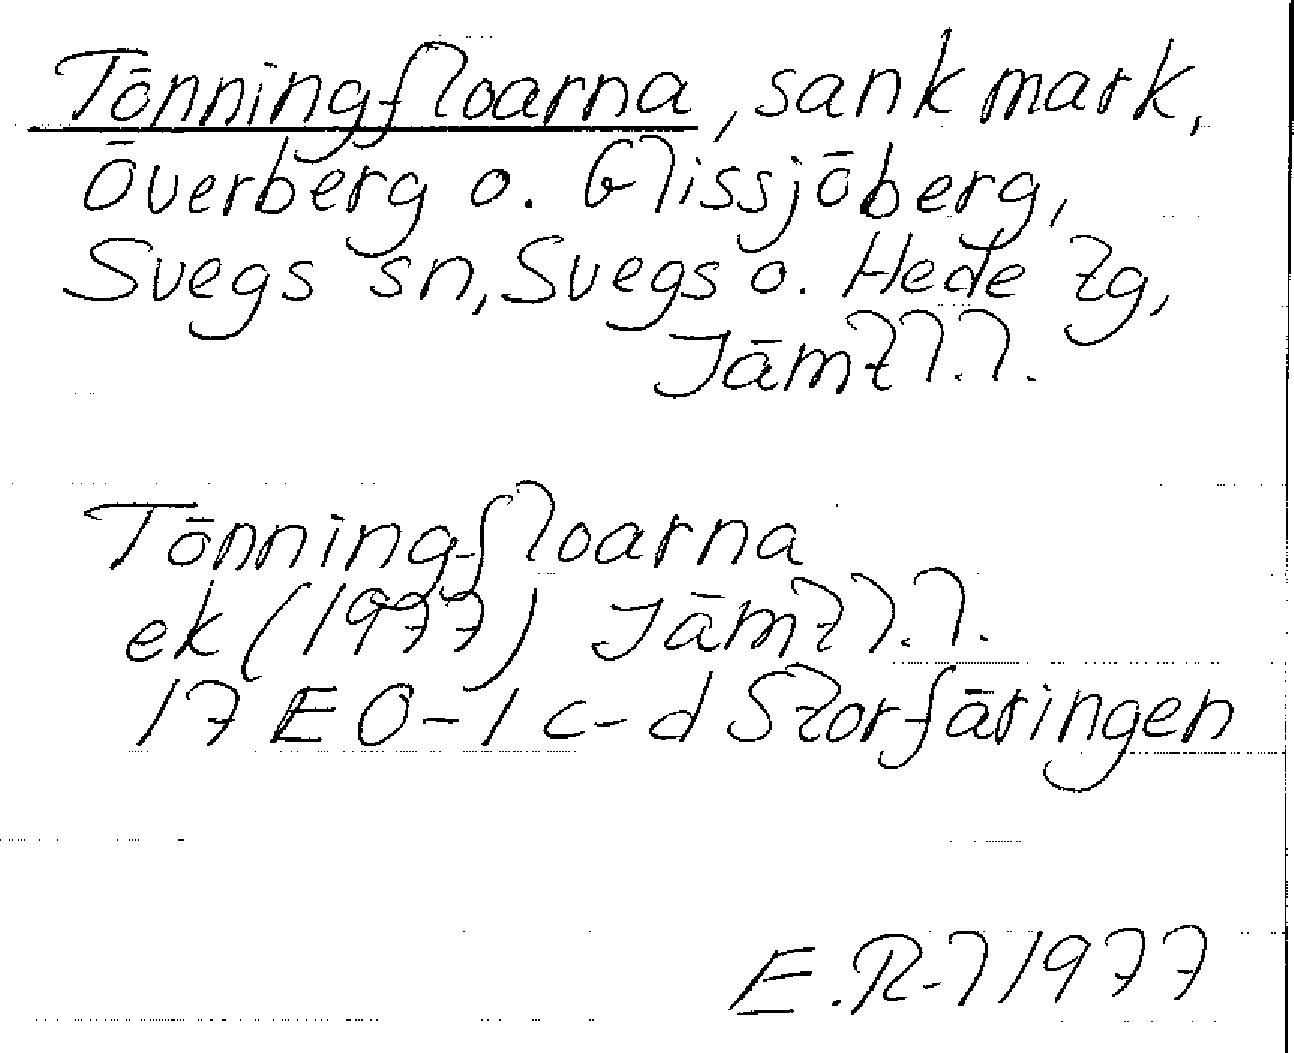 Tönningfloarna, sank mark,
Överberg o. Glissjöberg,
Svegs sn, Svegs o. Hede tg,
Jämtl.l.
Tönningfloarna
ek (1977) Jämtl.l.
17 E 0-1 c-d Storfäringen
E.R-l 1977